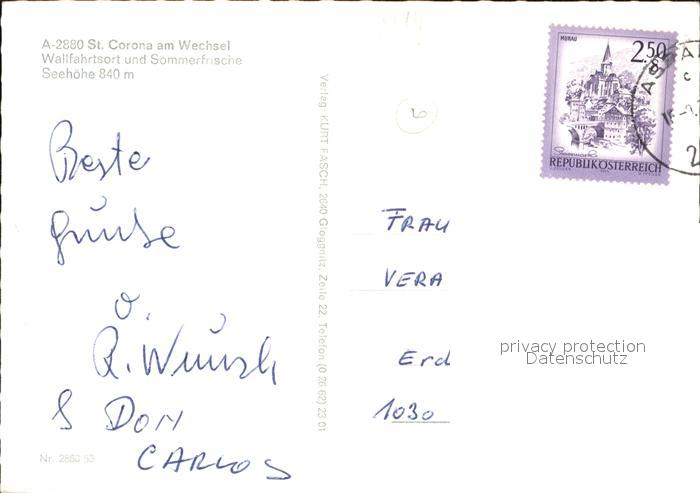 A-2880 St. Corona am Wechsel
Wallfahrtsort und Sommerfrische
Seehöhe 840 m
Beste
Grüße
R. Wünsch
& DON
CARLOS
Nr. 2880 53
Verlag KURT FASCH, 2640 Gloggnitz, Zeile 22, Telefon (0 26 62) 23 01
MURAU
2.50
REPUBLIK ÖSTERREICH
FRAU
VERA
Erd
1030
privacy protection
Datenschutz